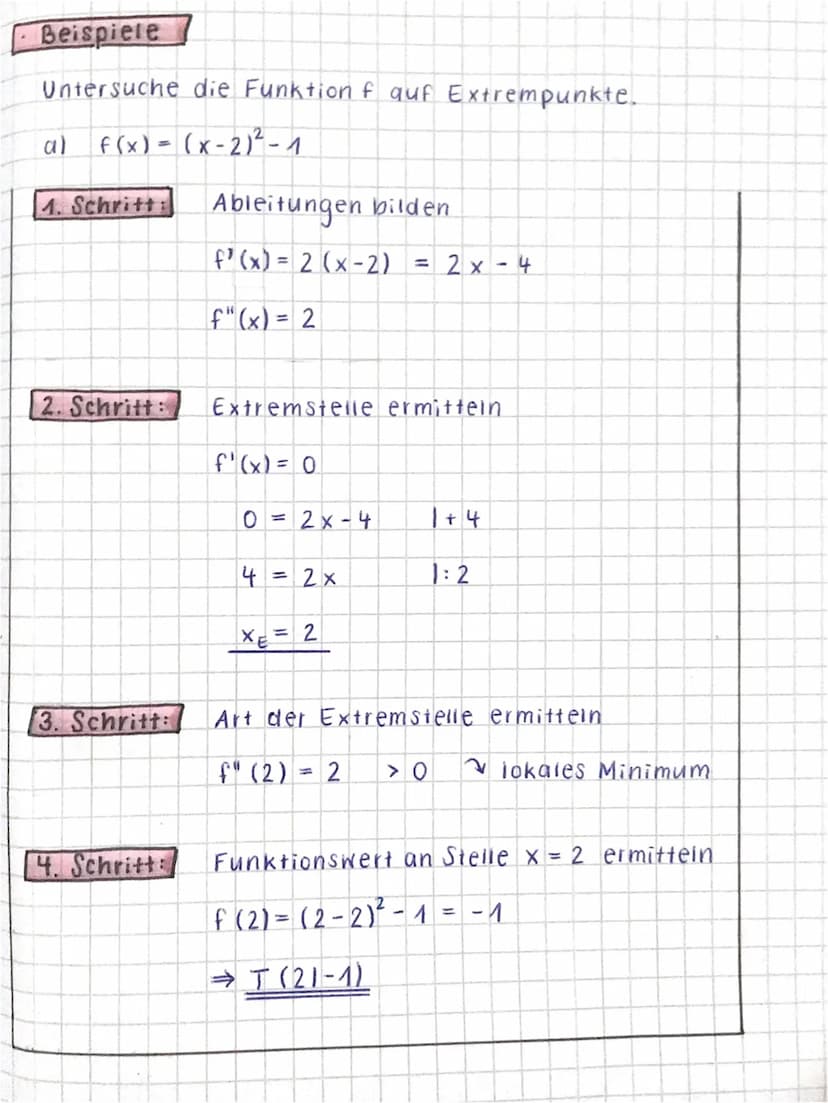 · Beispiele
Untersuche die Funktion f auf Extrempunkte.
a) f(x) = (x-2)² - 1
1. Schritt: Ableitungen bilden
f'(x) = 2(x-2) = 2x - 4
f"(x) = 2
2. Schritt: Extremstelle ermitteln
f'(x) = 0
0 = 2x - 4 | + 4
4 = 2x | : 2
x_E = 2
3. Schritt: Art der Extremstelle ermitteln
f"(2) = 2 > 0 ↘ lokales Minimum
4. Schritt: Funktionswert an Stelle x = 2 ermitteln
f(2) = (2-2)² - 1 = -1
⇒ T(2|-1)